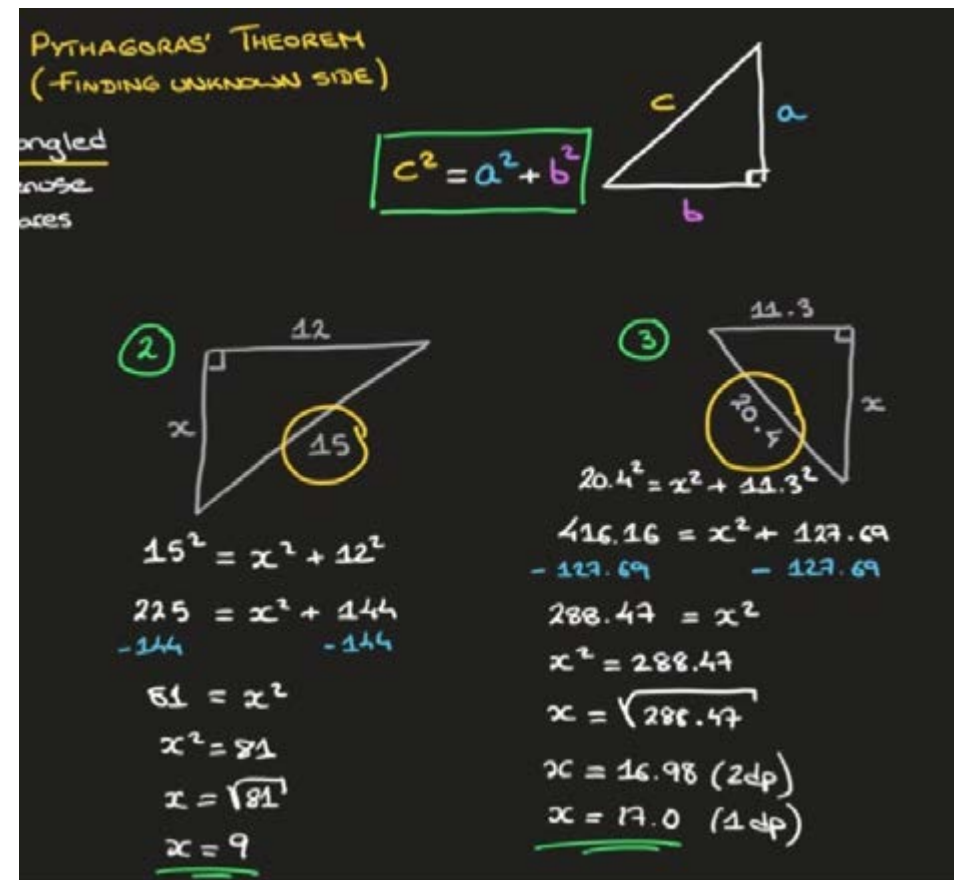 PYTHAGORAS' THEOREM
(FINDING UNKNOWN SIDE)
angled
nuse
ares
c² = a² + b²
c
a
b
2
12
x
15
15² = x² + 12²
225 = x² + 144
-144 -144
81 = x²
x² = 81
x = √81
x = 9
3
11.3
20.4
x
20.4² = x² + 11.3²
416.16 = x² + 127.69
- 127.69 - 127.69
288.47 = x²
x² = 288.47
x = √288.47
x = 16.98 (2dp)
x = 17.0 (1dp)